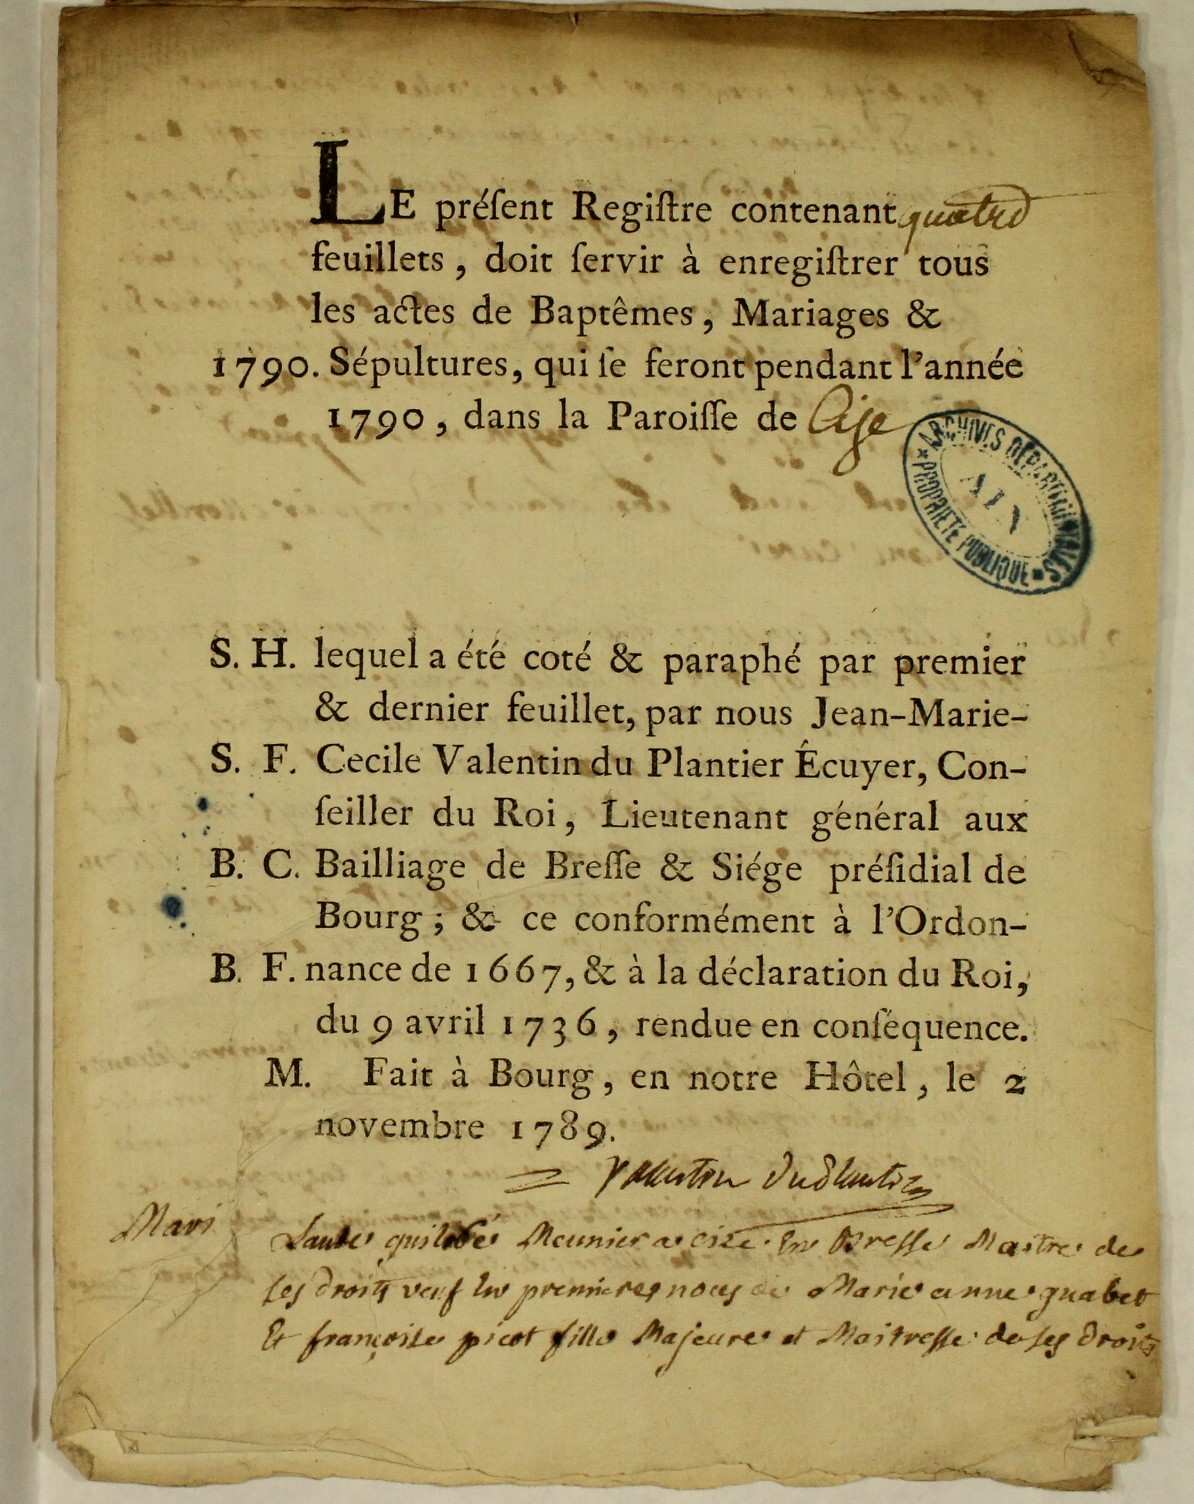 LE préſent Regiſtre contenant quatre
feuillets, doit ſervir à enregiſtrer tous
les actes de Baptêmes, Mariages &
1790. Sépultures, qui ſe feront pendant l'année
1790, dans la Paroiſſe de Cize
ARCHIVES DÉPARTEMENTALES
AIN
* PROPRIÉTÉ PUBLIQUE *
S. H. lequel a été coté & paraphé par premier
& dernier feuillet, par nous Jean-Marie-
S. F. Cecile Valentin du Plantier Écuyer, Con-
ſeiller du Roi, Lieutenant général aux
B. C. Bailliage de Breſſe & Siége préſidial de
Bourg; & ce conformément à l'Ordon-
B. F. nance de 1667, & à la déclaration du Roi,
du 9 avril 1736, rendue en conſéquence.
M. Fait à Bourg, en notre Hôtel, le 2
novembre 1789.
Valentin DuPlantier
Mari
Meunier a cize En Bresse Maitre de
ses droits veuf En premieres noces de Marie anne
Et françoise picot fille Majeure et Maitresse de ses droits